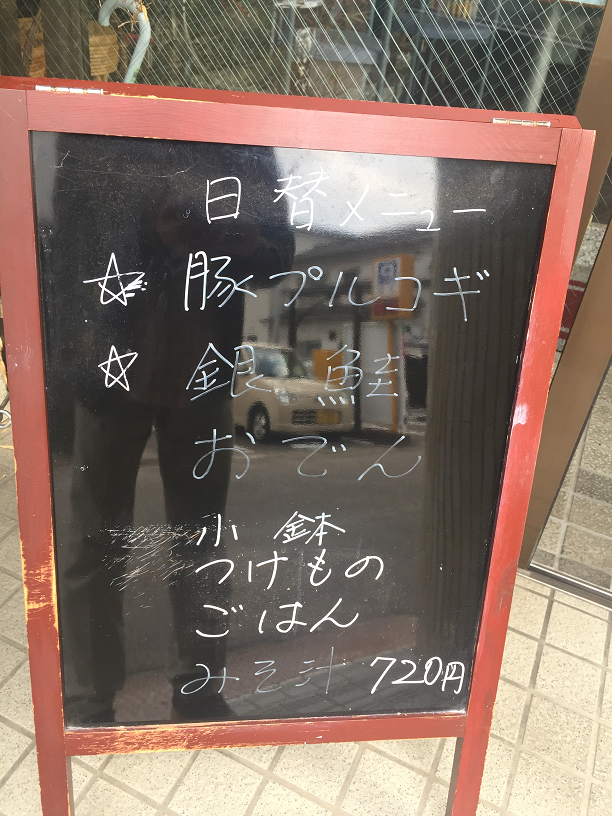 日替メニュー
☆豚プルコギ
☆銀鮭
おでん
小鉢
つけもの
ごはん
みそ汁 720円